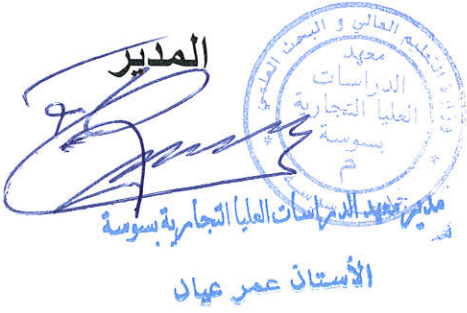 المدير
وزارة التعليم العالي و البحث العلمي
معهد
الدراسات
العليا التجارية
بسوسة
م
مدير معهد الدراسات العليا التجارية بسوسة
الأستاذ عمر عيان